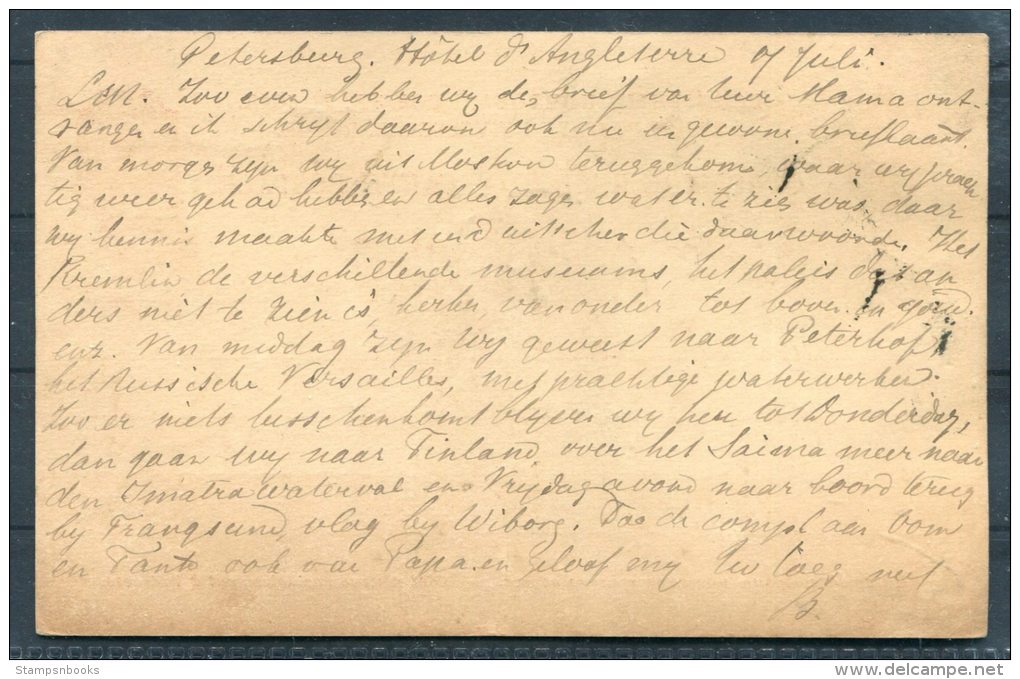 Petersburg. Hôtel d'Angleterre 7 Juli.
Zoo even hebben wy den brief van Uwe Mama ont-
vangen en ik schryf daarom ook nu en gewone briefkaart.
Van morgen zyn wy uit Moskou teruggekomen, waar wy prach
tig weer gehad hebben en alles zagen wat er te zien was, daar
wy kennis maakten met een duitscher die daar woonde. Het
Kremlin de verschillende museums, het paleis dat an
ders niet te zien is, kerken, van onder tot boven in goud.
enz. Van middag zyn wy geweest naar Peterhof
het Russische Versailles, met prachtige waterwerken.
Zoo er niets tusschenkomt blyven wy hier tot Donderdag,
dan gaan wy naar Finland, over het Saima meer naar
den Imatra waterval en Vrydag avond naar boord terug
by Trangsund, vlag by Wiborg. Doe de compl aan Oom
en Tante ook van Papa en geloof my Uw
B.
Stampsnbooks
www.delcampe.net